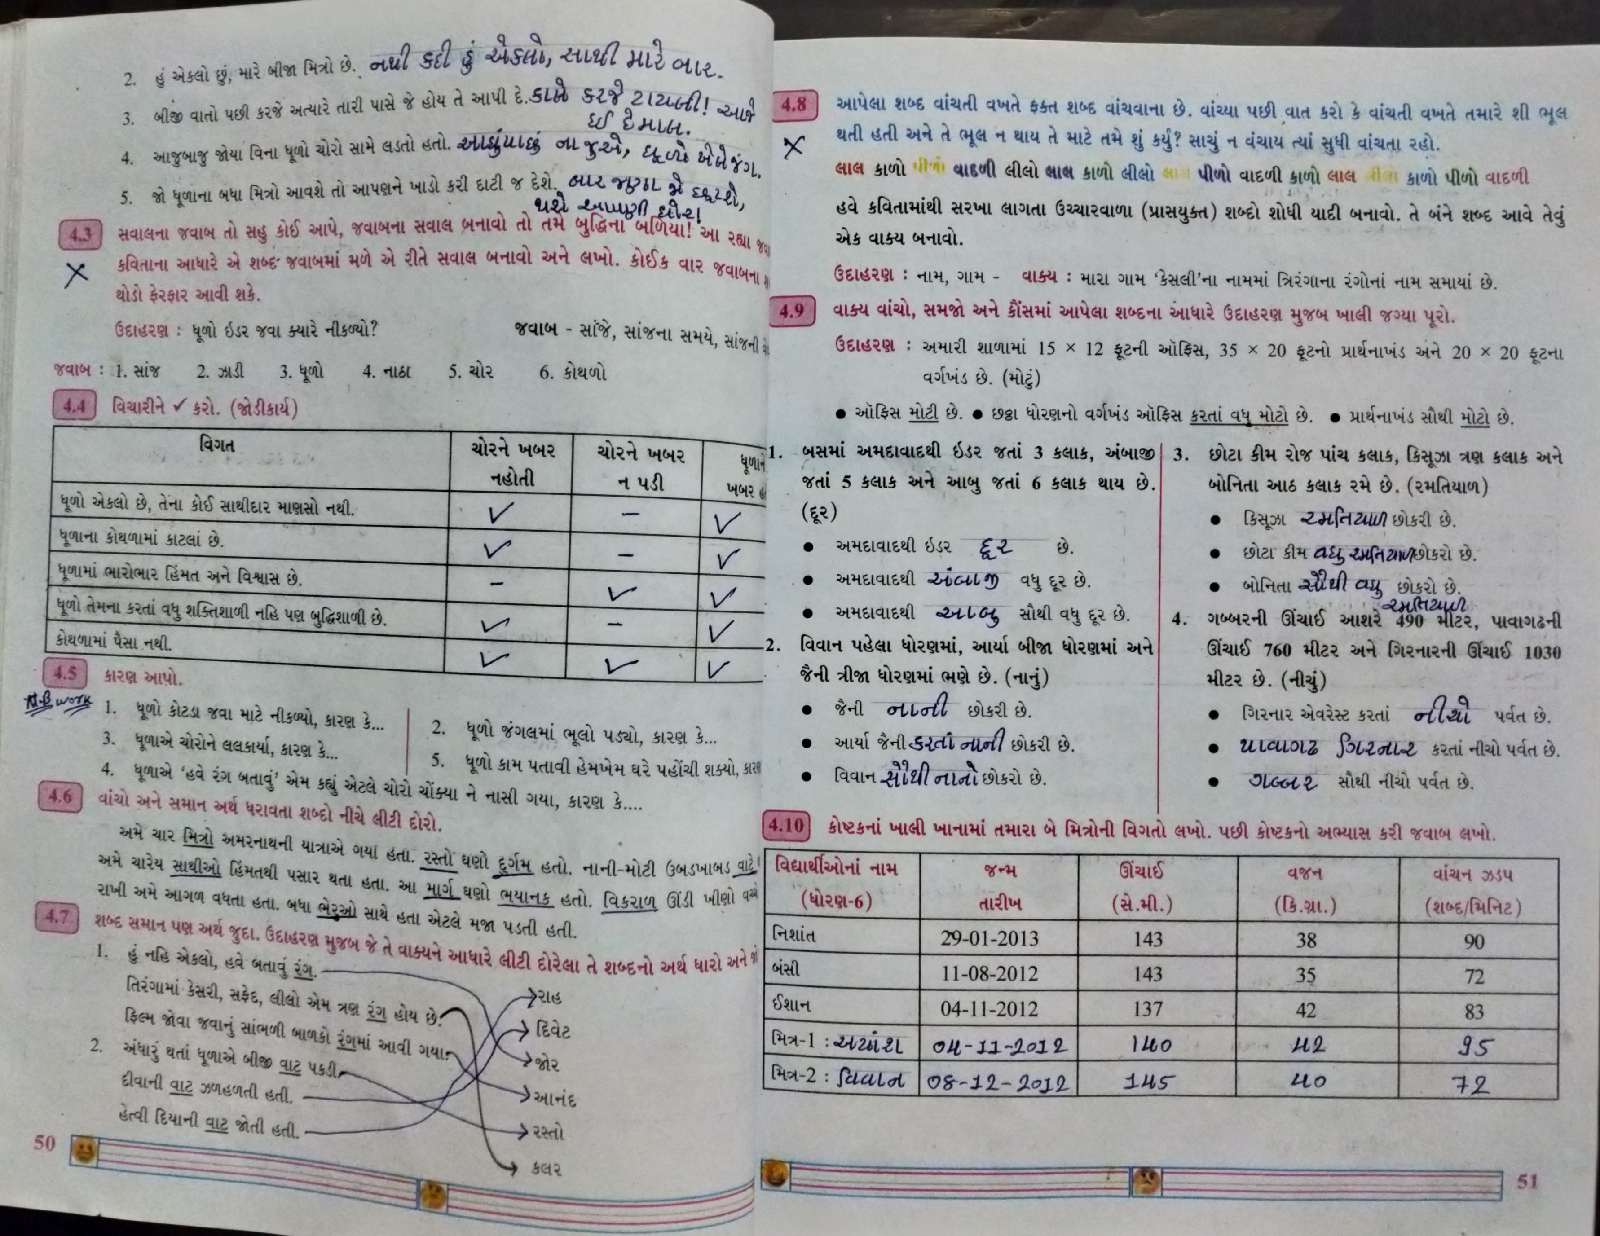 2. હું એકલો છું, મારે બીજા મિત્રો છે. નથી કદી હું એકલો, સાથી મારે બાર.
3. બીજી વાતો પછી કરજે અત્યારે તારી પાસે જે હોય તે આપી દે. કાલે કરજે ટાયલી! આજે
દઈ દે માલ.
4. આજુબાજુ જોયા વિના ધૂળો ચોરો સામે લડતો હતો. આઘુંપાછું ના જુએ, ધૂળો ખેલે જંગ.
5. જો ધૂળાના બધા મિત્રો આવશે તો આપણને ખાડો કરી દાટી જ દેશે. બાર જણા જો
થશે આપણી ઘોર!
4.3 સવાલના જવાબ તો સહુ કોઈ આપે, જવાબના સવાલ બનાવો તો તમે બુદ્ધિના બળિયા! આ રહ્યા
કવિતાના આધારે એ શબ્દ જવાબમાં મળે એ રીતે સવાલ બનાવો અને લખો. કોઈક વાર જવાબના
થોડો ફેરફાર આવી શકે.
ઉદાહરણ : ધૂળો ઇડર જવા ક્યારે નીકળ્યો? જવાબ - સાંજે, સાંજના સમયે, સાંજની
જવાબ : 1. સાંજ 2. ઝાડી 3. ધૂળો 4. નાઠા 5. ચોર 6. કોથળો
4.4 વિચારીને ✓ કરો. (જોડીકાર્ય)
વિગત ચોરને ખબર નહોતી ચોરને ખબર ન પડી ધૂળાને ખબર
ધૂળો એકલો છે, તેના કોઈ સાથીદાર માણસો નથી. ✓ – ✓
ધૂળાના કોથળામાં કાટલાં છે. ✓ – ✓
ધૂળામાં ભારોભાર હિંમત અને વિશ્વાસ છે. – ✓ ✓
ધૂળો તેમના કરતાં વધુ શક્તિશાળી નહિ પણ બુદ્ધિશાળી છે. ✓ – ✓
કોથળામાં પૈસા નથી. ✓ ✓ ✓
4.5 કારણ આપો.
N.B work
1. ધૂળો કોટડા જવા માટે નીકળ્યો, કારણ કે... 2. ધૂળો જંગલમાં ભૂલો પડ્યો, કારણ કે...
3. ધૂળાએ ચોરોને લલકાર્યા, કારણ કે... 5. ધૂળો કામ પતાવી હેમખેમ ઘરે પહોંચી શક્યો,
4. ધૂળાએ ‘હવે રંગ બતાવું’ એમ કહ્યું એટલે ચોરો ચોંક્યા ને નાસી ગયા, કારણ કે....
4.6 વાંચો અને સમાન અર્થ ધરાવતા શબ્દો નીચે લીટી દોરો.
અમે ચાર મિત્રો અમરનાથની યાત્રાએ ગયા હતા. રસ્તો ઘણો દુર્ગમ હતો. નાની-મોટી ઉબડખાબડ વાટે
અમે ચારેય સાથીઓ હિંમતથી પસાર થતા હતા. આ માર્ગ ઘણો ભયાનક હતો. વિકરાળ ઊંડી ખીણો વચ્ચે
રાખી અમે આગળ વધતા હતા. બધા ભેરુઓ સાથે હતા એટલે મજા પડતી હતી.
4.7 શબ્દ સમાન પણ અર્થ જુદા. ઉદાહરણ મુજબ જે તે વાક્યને આધારે લીટી દોરેલા તે શબ્દનો અર્થ ધારો અને
1. હું નહિ એકલો, હવે બતાવું રંગ.
તિરંગામાં કેસરી, સફેદ, લીલો એમ ત્રણ રંગ હોય છે. રાહ
ફિલ્મ જોવા જવાનું સાંભળી બાળકો રંગમાં આવી ગયા. દિવેટ
2. અંધારું થતાં ધૂળાએ બીજી વાટ પકડી. જોર
દીવાની વાટ ઝળહળતી હતી. આનંદ
હેત્વી દિયાની વાટ જોતી હતી. રસ્તો
કલર
50
4.8 આપેલા શબ્દ વાંચતી વખતે ફક્ત શબ્દ વાંચવાના છે. વાંચ્યા પછી વાત કરો કે વાંચતી વખતે તમારે શી ભૂલ
થતી હતી અને તે ભૂલ ન થાય તે માટે તમે શું કર્યું? સાચું ન વંચાય ત્યાં સુધી વાંચતા રહો.
લાલ કાળો પીળો વાદળી લીલો લાલ કાળો લીલો લાલ પીળો વાદળી કાળો લાલ લીલો કાળો પીળો વાદળી
હવે કવિતામાંથી સરખા લાગતા ઉચ્ચારવાળા (પ્રાસયુક્ત) શબ્દો શોધી યાદી બનાવો. તે બંને શબ્દ આવે તેવું
એક વાક્ય બનાવો.
ઉદાહરણ : નામ, ગામ - વાક્ય : મારા ગામ ‘કેસલી’ના નામમાં ત્રિરંગાના રંગોનાં નામ સમાયાં છે.
4.9 વાક્ય વાંચો, સમજો અને કૌંસમાં આપેલા શબ્દના આધારે ઉદાહરણ મુજબ ખાલી જગ્યા પૂરો.
ઉદાહરણ : અમારી શાળામાં 15 × 12 ફૂટની ઑફિસ, 35 × 20 ફૂટનો પ્રાર્થનાખંડ અને 20 × 20 ફૂટના
વર્ગખંડ છે. (મોટું)
● ઑફિસ મોટી છે. ● છઠ્ઠા ધોરણનો વર્ગખંડ ઑફિસ કરતાં વધુ મોટો છે. ● પ્રાર્થનાખંડ સૌથી મોટો છે.
1. બસમાં અમદાવાદથી ઇડર જતાં 3 કલાક, અંબાજી
જતાં 5 કલાક અને આબુ જતાં 6 કલાક થાય છે.
(દૂર)
● અમદાવાદથી ઇડર દૂર છે.
● અમદાવાદથી અંબાજી વધુ દૂર છે.
● અમદાવાદથી આબુ સૌથી વધુ દૂર છે.
2. વિવાન પહેલા ધોરણમાં, આર્યા બીજા ધોરણમાં અને
જૈની ત્રીજા ધોરણમાં ભણે છે. (નાનું)
● જૈની નાની છોકરી છે.
● આર્યા જૈની કરતાં નાની છોકરી છે.
● વિવાન સૌથી નાનો છોકરો છે.
3. છોટા કીમ રોજ પાંચ કલાક, કિસૂઝા ત્રણ કલાક અને
બોનિતા આઠ કલાક રમે છે. (રમતિયાળ)
● કિસૂઝા રમતિયાળ છોકરી છે.
● છોટા કીમ વધુ રમતિયાળ છોકરો છે.
● બોનિતા સૌથી વધુ છોકરો છે.
રમતિયાળ
4. ગબ્બરની ઊંચાઈ આશરે 490 મીટર, પાવાગઢની
ઊંચાઈ 760 મીટર અને ગિરનારની ઊંચાઈ 1030
મીટર છે. (નીચું)
● ગિરનાર એવરેસ્ટ કરતાં નીચો પર્વત છે.
● પાવાગઢ ગિરનાર કરતાં નીચો પર્વત છે.
● ગબ્બર સૌથી નીચો પર્વત છે.
4.10 કોષ્ટકનાં ખાલી ખાનામાં તમારા બે મિત્રોની વિગતો લખો. પછી કોષ્ટકનો અભ્યાસ કરી જવાબ લખો.
વિદ્યાર્થીઓનાં નામ જન્મ ઊંચાઈ વજન વાંચન ઝડપ
(ધોરણ-6) તારીખ (સે.મી.) (કિ.ગ્રા.) (શબ્દ/મિનિટ)
નિશાંત 29-01-2013 143 38 90
બંસી 11-08-2012 143 35 72
ઈશાન 04-11-2012 137 42 83
મિત્ર-1 : 04-11-2012 140 42 95
મિત્ર-2 : વિવાન 08-12-2012 145 40 72
51